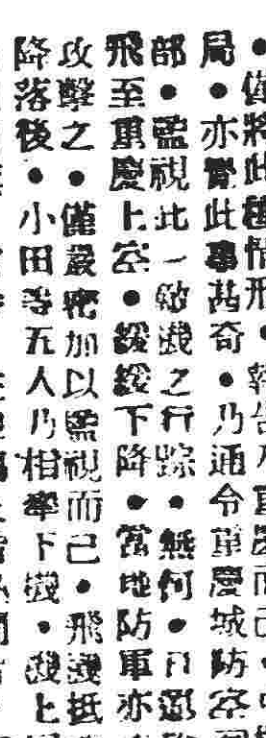 僅將此種情形●報告
局●●亦覺此事茲奇●乃通令重慶城防空
部●監視此一敵機之行踪●無何●日
飛至重慶上空●緩緩下降●當地防軍亦
攻擊之●僅嚴密加以監視而已●飛機抵
降落後●小田等五人乃相率下機●機上